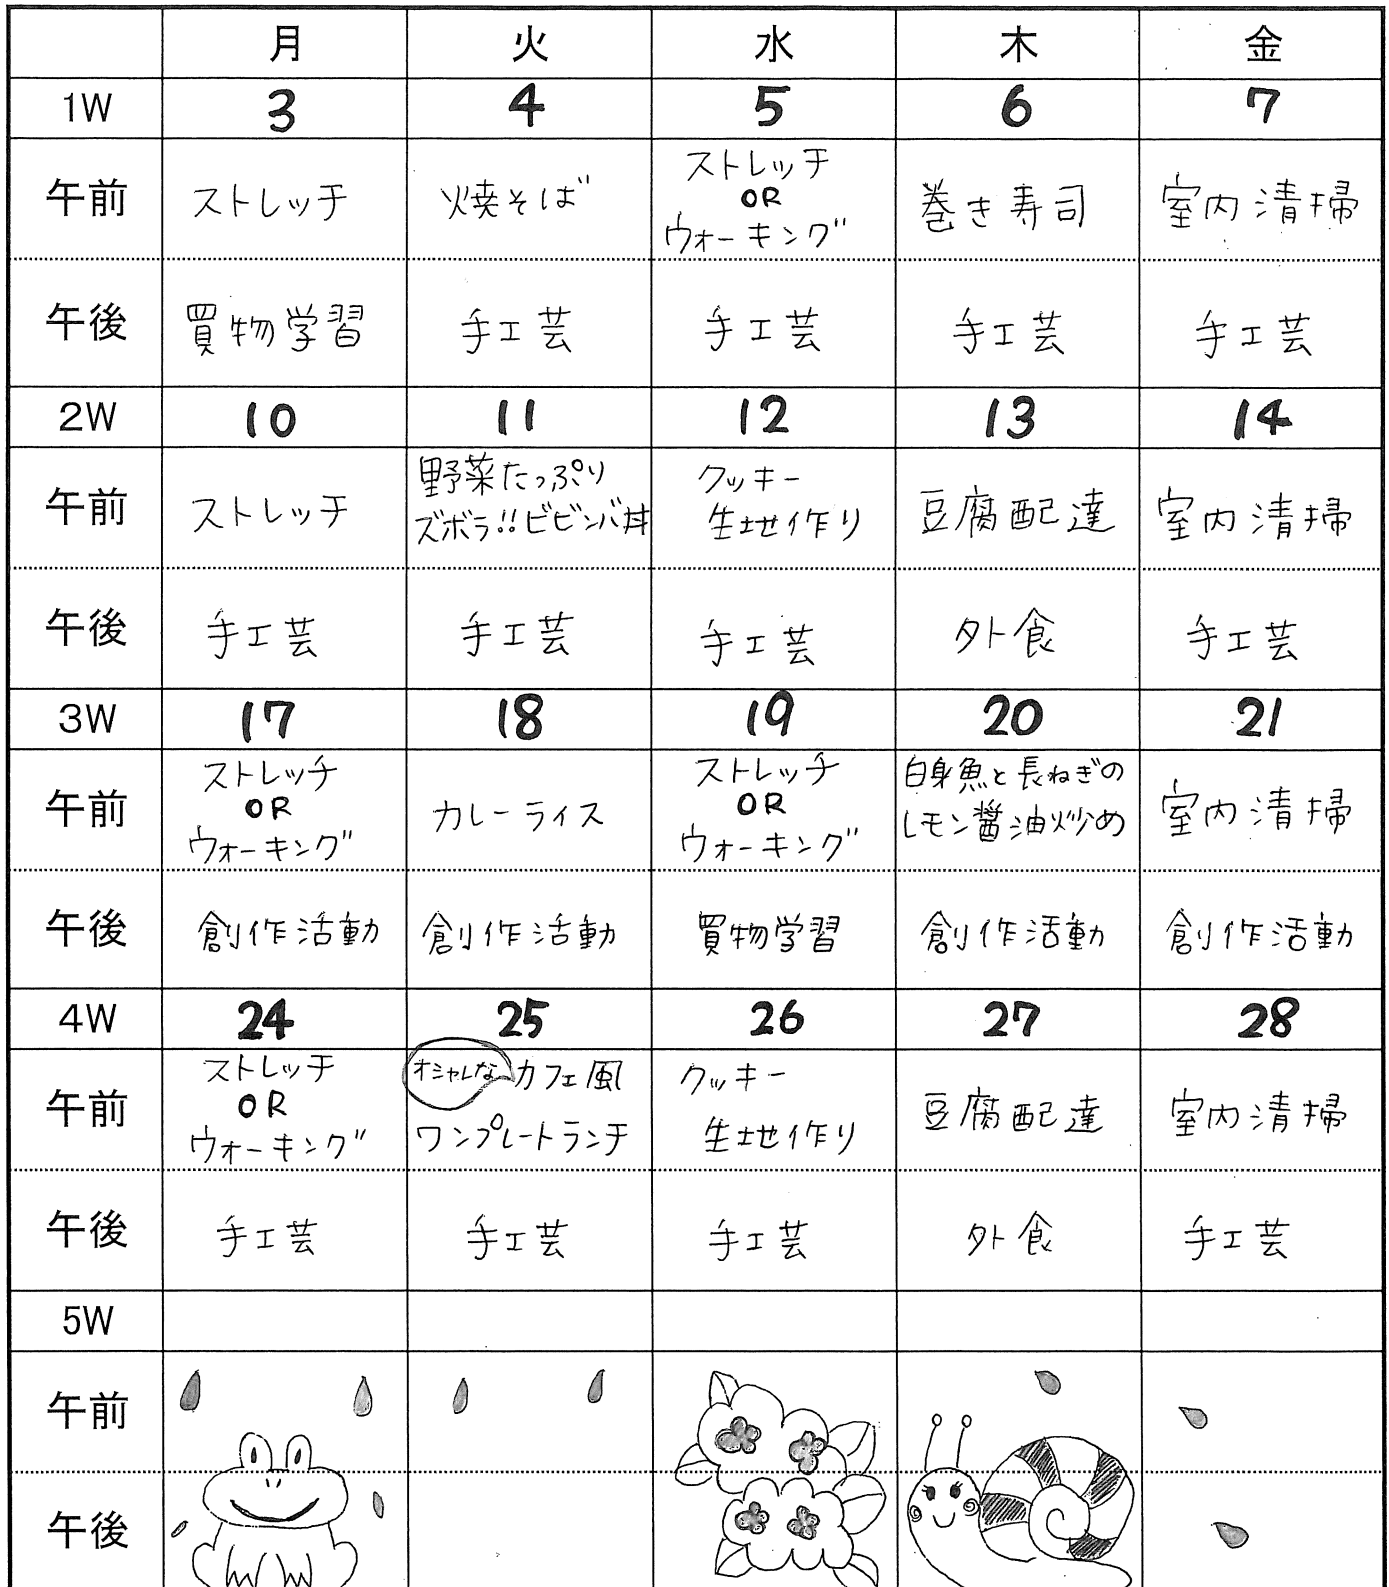 月 火 水 木 金
1W 3 4 5 6 7
午前 ストレッチ 焼そば ストレッチ OR ウォーキング 巻き寿司 室内清掃
午後 買物学習 手工芸 手工芸 手工芸 手工芸
2W 10 11 12 13 14
午前 ストレッチ 野菜たっぷり ズボラ!!ビビンバ丼 クッキー 生地作り 豆腐配達 室内清掃
午後 手工芸 手工芸 手工芸 外食 手工芸
3W 17 18 19 20 21
午前 ストレッチ OR ウォーキング カレーライス ストレッチ OR ウォーキング 白身魚と長ねぎの レモン醤油炒め 室内清掃
午後 創作活動 創作活動 買物学習 創作活動 創作活動
4W 24 25 26 27 28
午前 ストレッチ OR ウォーキング オシャレな カフェ風 ワンプレートランチ クッキー 生地作り 豆腐配達 室内清掃
午後 手工芸 手工芸 手工芸 外食 手工芸
5W
午前
午後